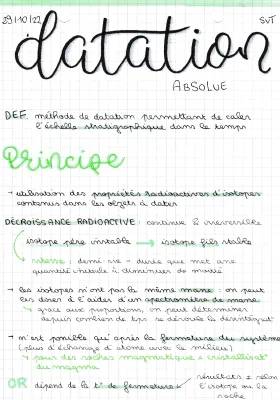 29/10/22 SVT
datation
ABSOLUE
DEF. méthode de datation permettant de caler
l'échelle stratigraphique dans le temps
Principe
→ utilisation des propriétés radioactives d'isotopes
contenus dans les objets à dater
DÉCROISSANCE RADIOACTIVE : continue & irréversible
isotope père instable → isotope fils stable
: demi-vie = durée que met une
quantité initiale à diminuer de moitié
→ les isotopes n'ont pas la même masse : on peut
les doser à l'aides d'un spectromètre de masse
↳ grâce aux proportions, on peut déterminer
depuis combien de tps se déroule la désintégrat°
→ n'est possible qu'après la fermeture du système
(plus d'échange d'atome avec le milieu)
↳ pour des roches magmatiques = cristallisat°
du magma
OR dépend de la t° de fermeture
résultats ≠ selon
l'isotope ou la
roche